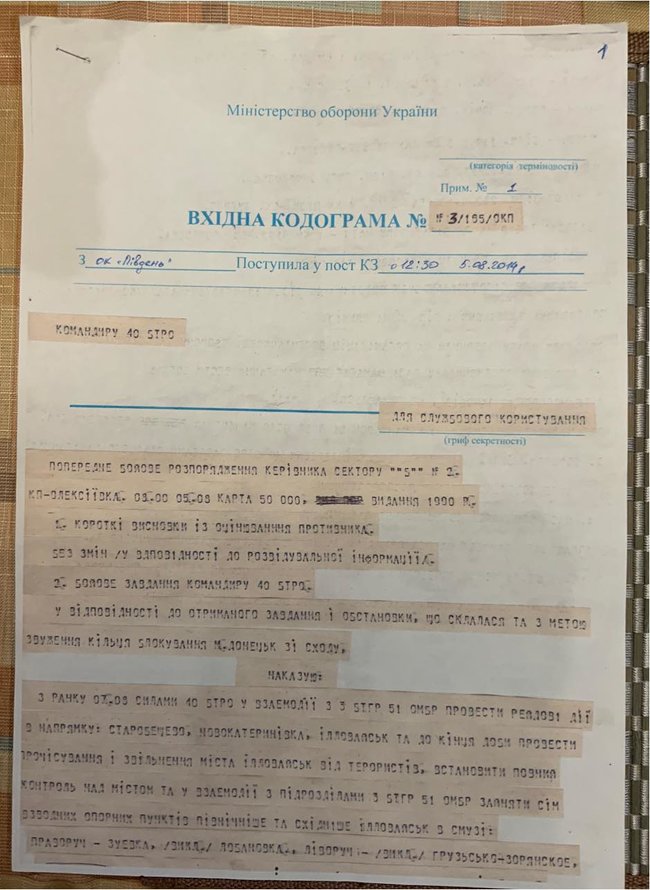 1
Міністерство оборони України
(категорія терміновості)
Прим. № 1
ВХІДНА КОДОГРАМА № № 3/195/ОКП
З ок "Південь" Поступила у пост КЗ о 12:30 5.08.2014р
КОМАНДИРУ 40 БТРО
ДЛЯ СЛУЖБОВОГО КОРИСТУВАННЯ
(гриф секретності)
ПОПЕРЕДНЕ БОЙОВЕ РОЗПОРЯДЖЕННЯ КЕРІВНИКА СЕКТОРУ ""Б"" № 2.
КП-ОЛЕКСІЇВКА. 09.00 05.08 КАРТА 50 000, ВИДАННЯ 1990 Р.
1. КОРОТКІ ВИСНОВКИ ІЗ ОЦІНЮВАННЯ ПРОТИВНИКА.
БЕЗ ЗМІН /У ВІДПОВІДНОСТІ ДО РОЗВІДУВАЛЬНОЇ ІНФОРМАЦІЇ/.
2. БОЙОВЕ ЗАВДАННЯ КОМАНДИРУ 40 БТРО.
У ВІДПОВІДНОСТІ ДО ОТРИМАНОГО ЗАВДАННЯ І ОБСТАНОВКИ, ЩО СКЛАЛАСЯ ТА З МЕТОЮ
ЗВУЖЕННЯ КІЛЬЦЯ БЛОКУВАННЯ М.ДОНЕЦЬК ЗІ СХОДУ,
НАКАЗУЮ:
З РАНКУ 07.08 СИЛАМИ 40 БТРО У ВЗАЄМОДІЇ З 3 БТГР 51 ОМБР ПРОВЕСТИ РЕЙДОВІ ДІЇ
В НАПРЯМКУ: СТАРОБЕШЕВО, НОВОКАТЕРИНІВКА, ІЛЛОВАЙСЬК ТА ДО КІНЦЯ ДОБИ ПРОВЕСТИ
ПРОЧІСУВАННЯ І ЗВІЛЬНЕННЯ МІСТА ІЛЛОВАЙСЬК ВІД ТЕРОРИСТІВ, ВСТАНОВИТИ ПОВНИЙ
КОНТРОЛЬ НАД МІСТОМ ТА У ВЗАЄМОДІЇ З ПІДРОЗДІЛАМИ 3 БТГР 51 ОМБР ЗАЙНЯТИ СІМ
ВЗВОДНИХ ОПОРНИХ ПУНКТІВ ПІВНІЧНІШЕ ТА СХІДНІШЕ ІЛЛОВАЙСЬК В СМУЗІ:
ПРАВОРУЧ - ЗУЕВКА, /ВИКЛ./ ЛОБАНОВКА., ЛІВОРУЧ - /ВИКЛ./ ГРУЗЬСЬКО-ЗОРЯНСКОЕ,